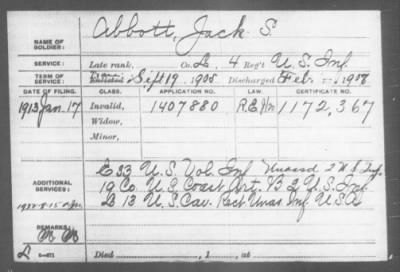 NAME OF SOLDIER: Abbott, Jack S.
SERVICE: Late rank, Co. L, 4 Reg't U.S. Inf.
TERM OF SERVICE: Enlisted Sept 19, 1905 Discharged Feb — 1908
DATE OF FILING. CLASS. APPLICATION NO. LAW. CERTIFICATE NO.
1913 Jan. 17 Invalid, 1407880 1172,367
Widow,
Minor,
ADDITIONAL SERVICES: E 33 U.S. Vol. Inf Unassd 2 U.S. Inf.
19 Co. U.S. Coast Art. B 2 U.S. Inf.
L 13 U.S. Cav. Rect Unas. Inf. U.S.A
REMARKS:
Died , 1 , at